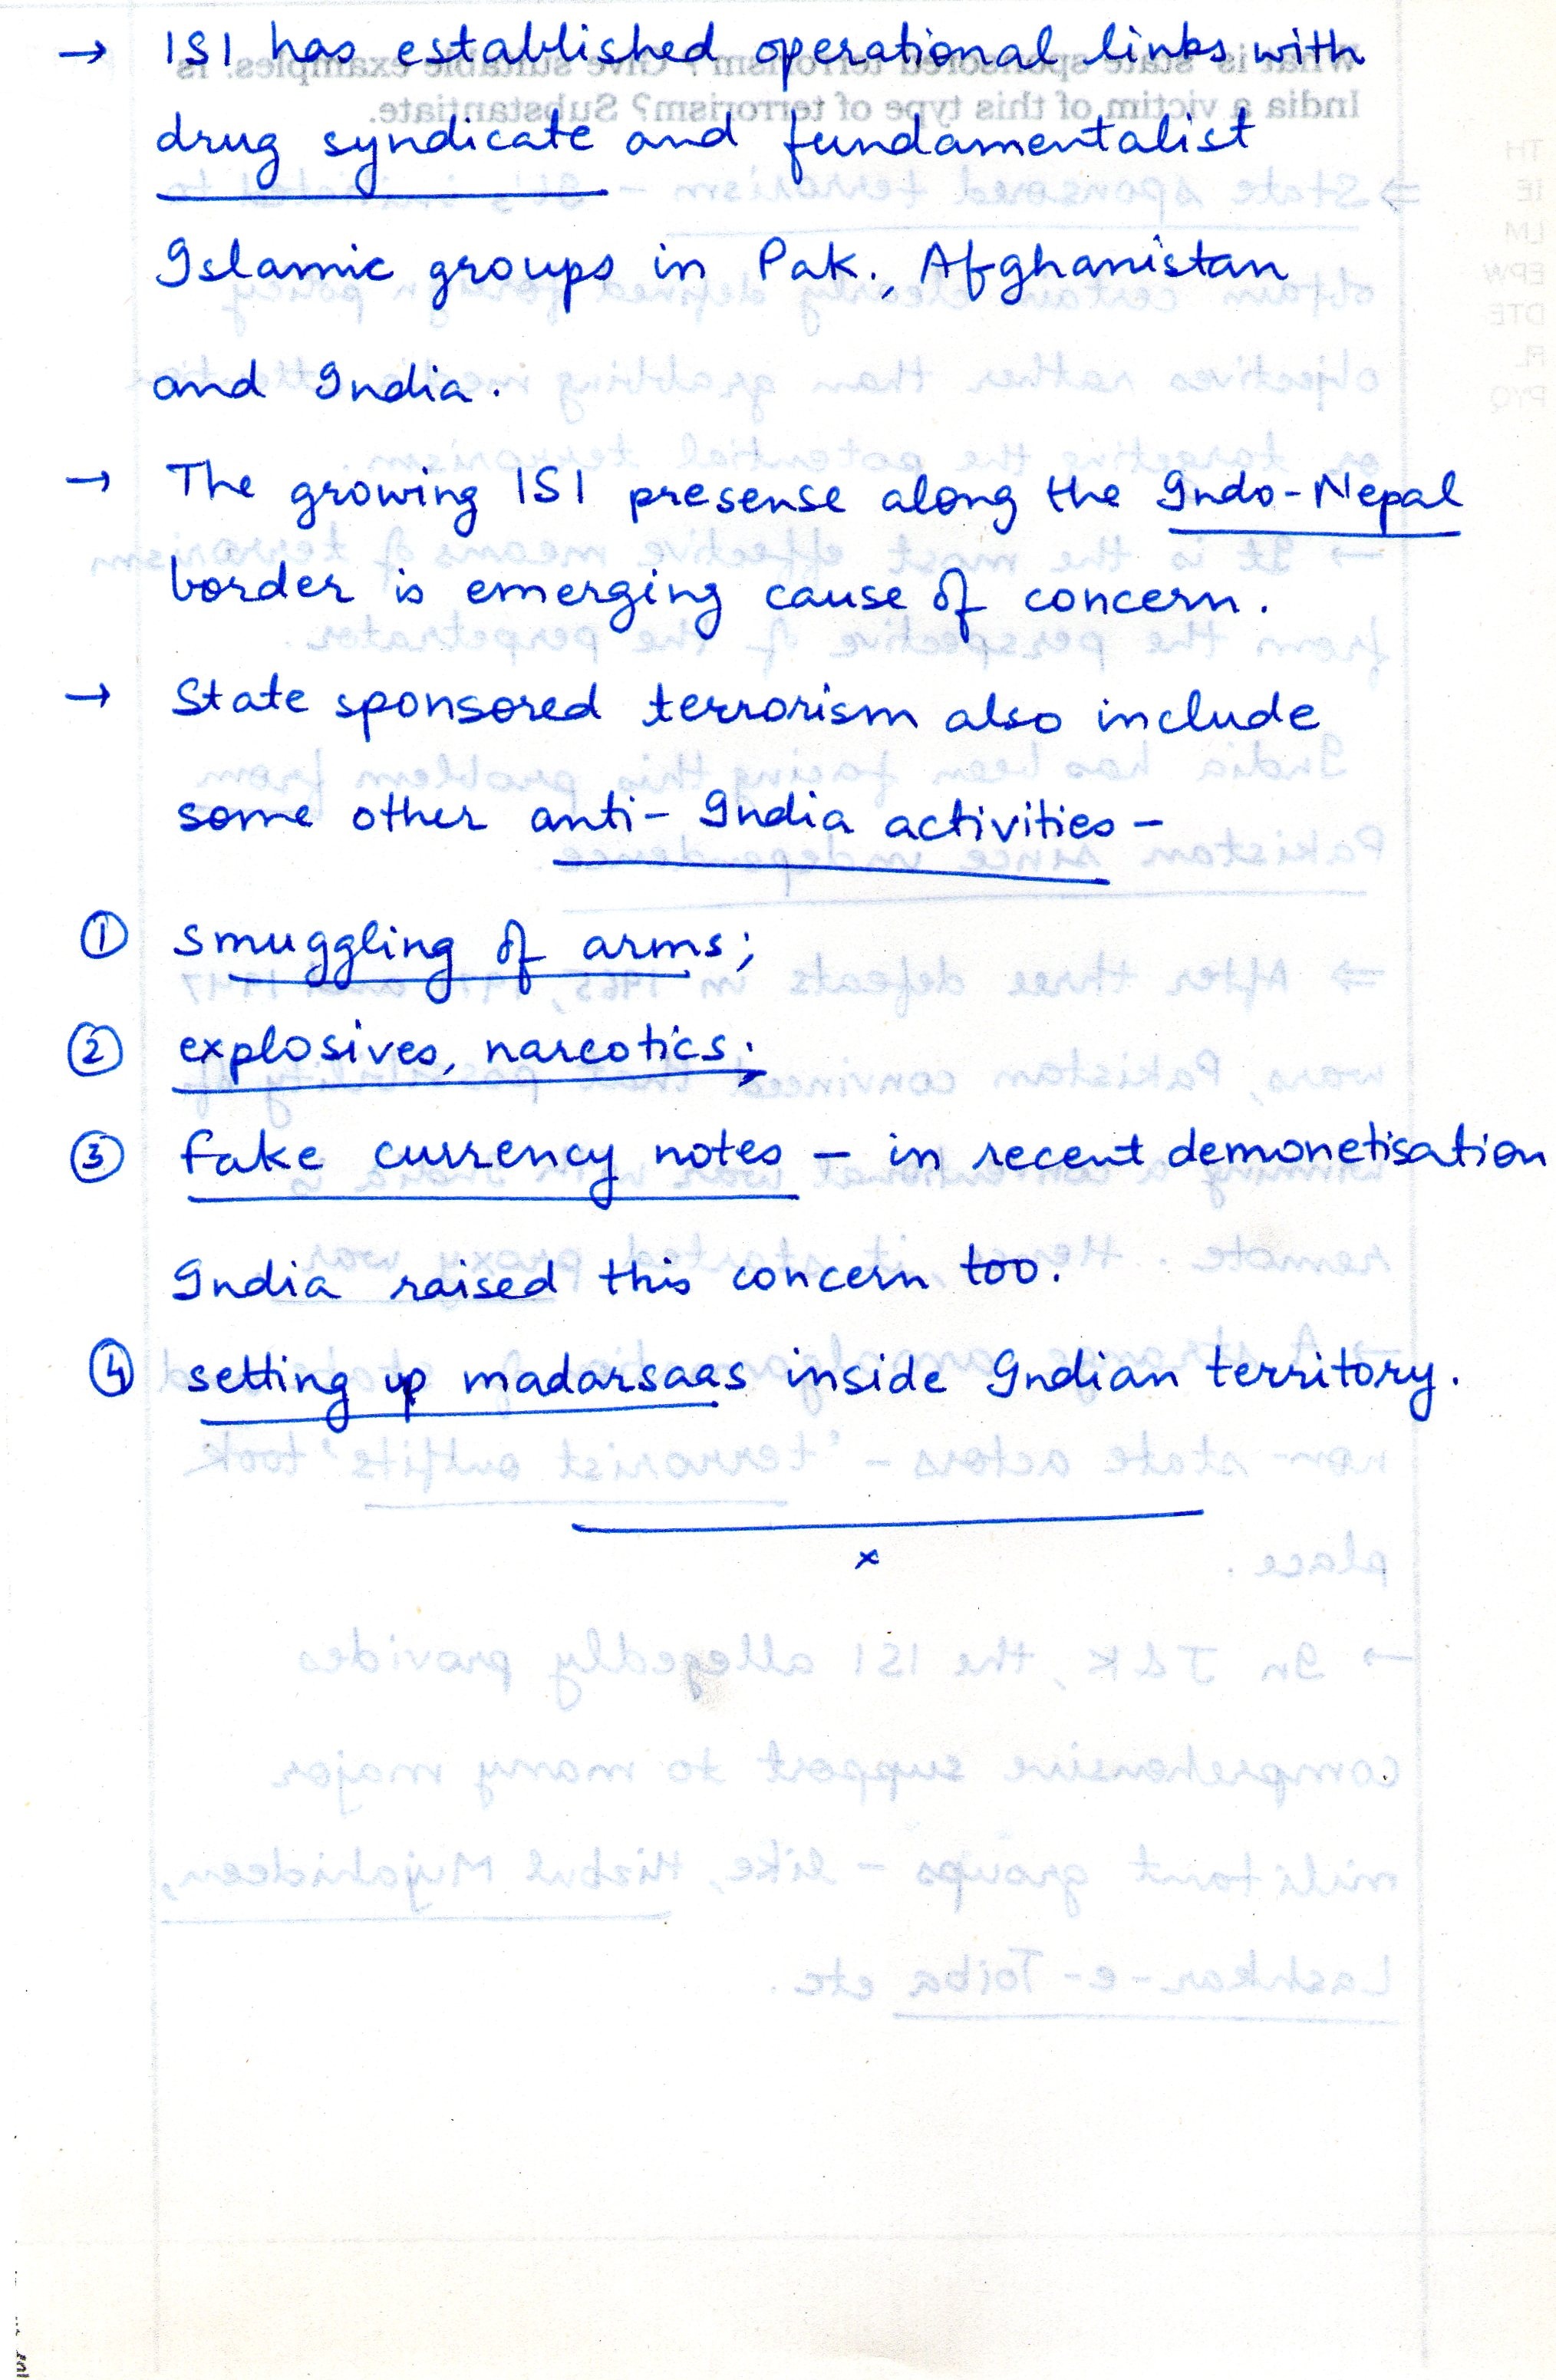 → ISI has established operational links with
drug syndicate and fundamentalist
Islamic groups in Pak., Afghanistan
and India.
→ The growing ISI presense along the Indo-Nepal
border is emerging cause of concern.
→ State sponsored terrorism also include
some other anti-India activities-
① smuggling of arms;
② explosives, narcotics;
③ fake currency notes – in recent demonetisation
India raised this concern too.
④ setting up madarsaas inside Indian territory.
x